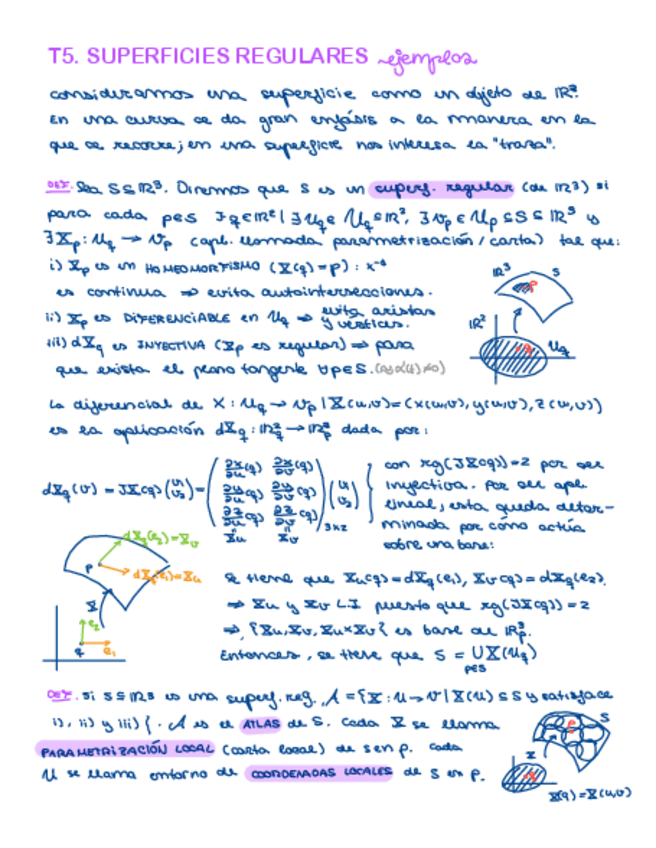 T5. SUPERFICIES REGULARES ejemplos
consideramos una superficie como un objeto de IR³.
En una curva se da gran enfásis a la manera en la
que se recorre; en una superficie nos interesa la "traza".
DEF. Sea S⊆IR³. Diremos que S es un superf. regular (de IR³) si
para cada p∈S ∃q∈IR² | ∃U_q ⊆ IR², ∃V_p ⊆ S ⊆ IR³ y
∃X_p: U_q → V_p (apl. llamada parametrización / carta) tal que:
i) X_p es un HOMEOMORFISMO (X(q)=p): x⁻¹
es continua ⇒ evita autointersecciones.
ii) X_p es DIFERENCIABLE en U_q ⇒ evita aristas
y vértices.
iii) dX_q es INYECTIVA (X_p es regular) ⇒ para
que exista el plano tangente ∀p∈S.
IR³ S
p
IR²
U_q
La diferencial de X: U_q → V_p | X(u,v)=(x(u,v), y(u,v), z(u,v))
es la aplicación dX_q: IR² → IR³ dada por:
dX_q(v) = JX(q)(v₁ v₂) = (∂x/∂u(q) ∂x/∂v(q)
∂y/∂u(q) ∂y/∂v(q)
∂z/∂u(q) ∂z/∂v(q))₃ₓ₂ (v₁ v₂)
X_u X_v
con rg(JX(q))=2 por ser
inyectiva. Por ser apl.
lineal, esta queda deter-
minada por cómo actúa
sobre una base:
dX_q(e₂)=X_v
p
dX_q(e₁)=X_u
X
e₂
q e₁
Se tiene que X_u(q)=dX_q(e₁), X_v(q)=dX_q(e₂).
⇒ X_u y X_v L.I puesto que rg(JX(q))=2
⇒ {X_u, X_v, X_u×X_v} es base de IR³.
Entonces, se tiene que S = ∪ X(U_q)
p∈S
DEF. Si S⊆IR³ es una superf. reg., A={X: U→V | X(U)⊆S y satisface
i), ii) y iii)}. A es el ATLAS de S. Cada X se llama
PARAMETRIZACIÓN LOCAL (carta local) de S en p. Cada
U se llama entorno de COORDENADAS LOCALES de S en p.
p S
X
X(q)=X(u,v)